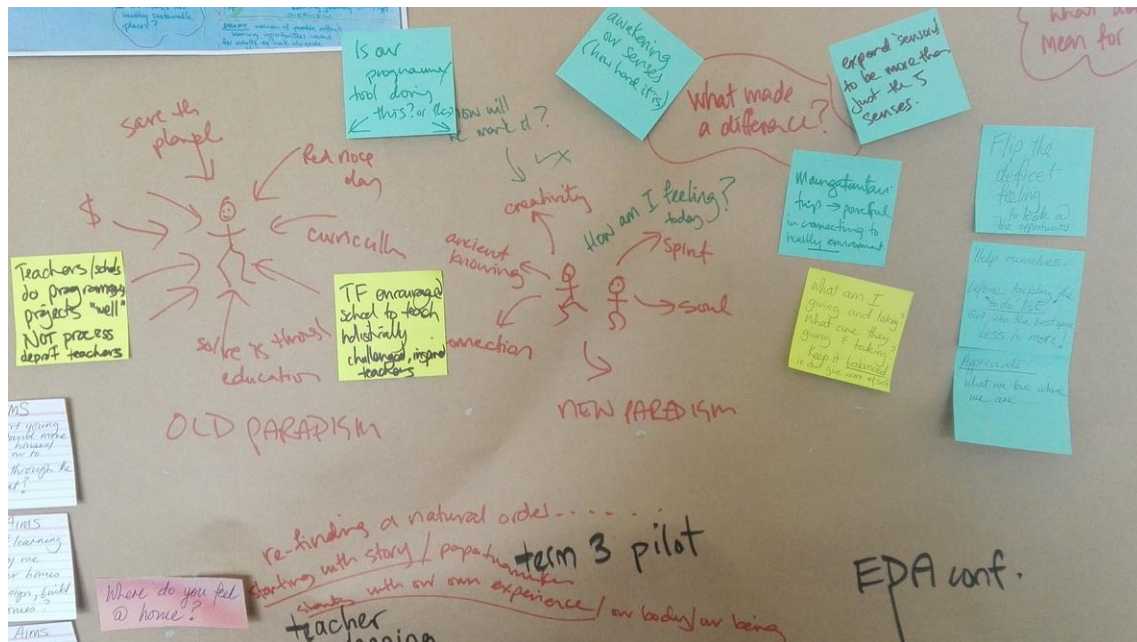 healthy sustainable
places?
Is our
programme/
tool doing
this? or this?
how will
we mark it?
awakening
our senses
(how hard it is)
What made
a difference?
expand 'sensory'
to be more than
just the 5
senses.
mean for
save the
Red nose
day
$
curriculum
Teachers/schools
do programmes
projects "well"
NOT process
TF encouraged
school to teach
holistically
challenged, inspired
teachers
education
OLD PARADISM
creativity
How am I feeling?
today
ancient
knowing
spirit
soul
connection
NEW PARADISM
Maungatautari
trip → powerful
in connecting to
healthy environment
What am I
giving and taking?
What are they
giving & taking?
Keep it balanced
Flip the
deficit
feeling
the opportunities
Help ourselves
before tackling the
"to do" list
Get into the best space
Less is more!
Appreciate
what we love where
we are
AIMS
learning
homes
AIMS
Where do you feel
@ home?
re-finding a natural order......
starting with story / papatuanuku
starts with our own experience / our body/our being
term 3 pilot
teacher
EPA conf.